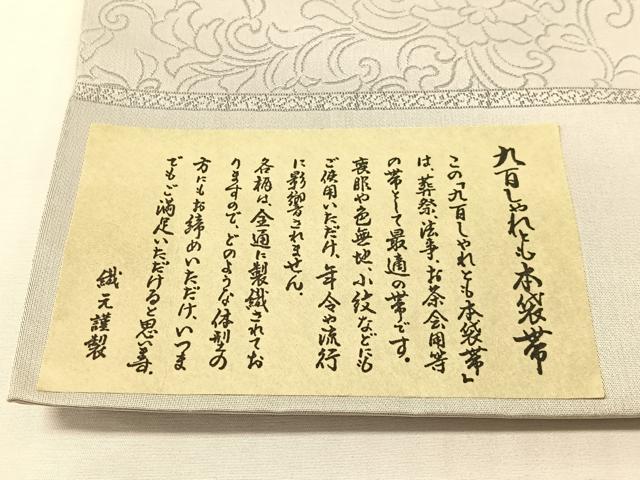 九百しゃれとも本袋帯
この「九百しゃれとも本袋帯」
は、葬祭、法事、お茶会用等
の帯として最適の帯です。
喪服や色無地、小紋などにも
ご使用いただけ、年令や流行
に影響されません。
各柄は、全通に製織されてお
りますので、どのような体型の
方にもお締めいただけ、いつま
でもご満足いただけると思います。
織元謹製